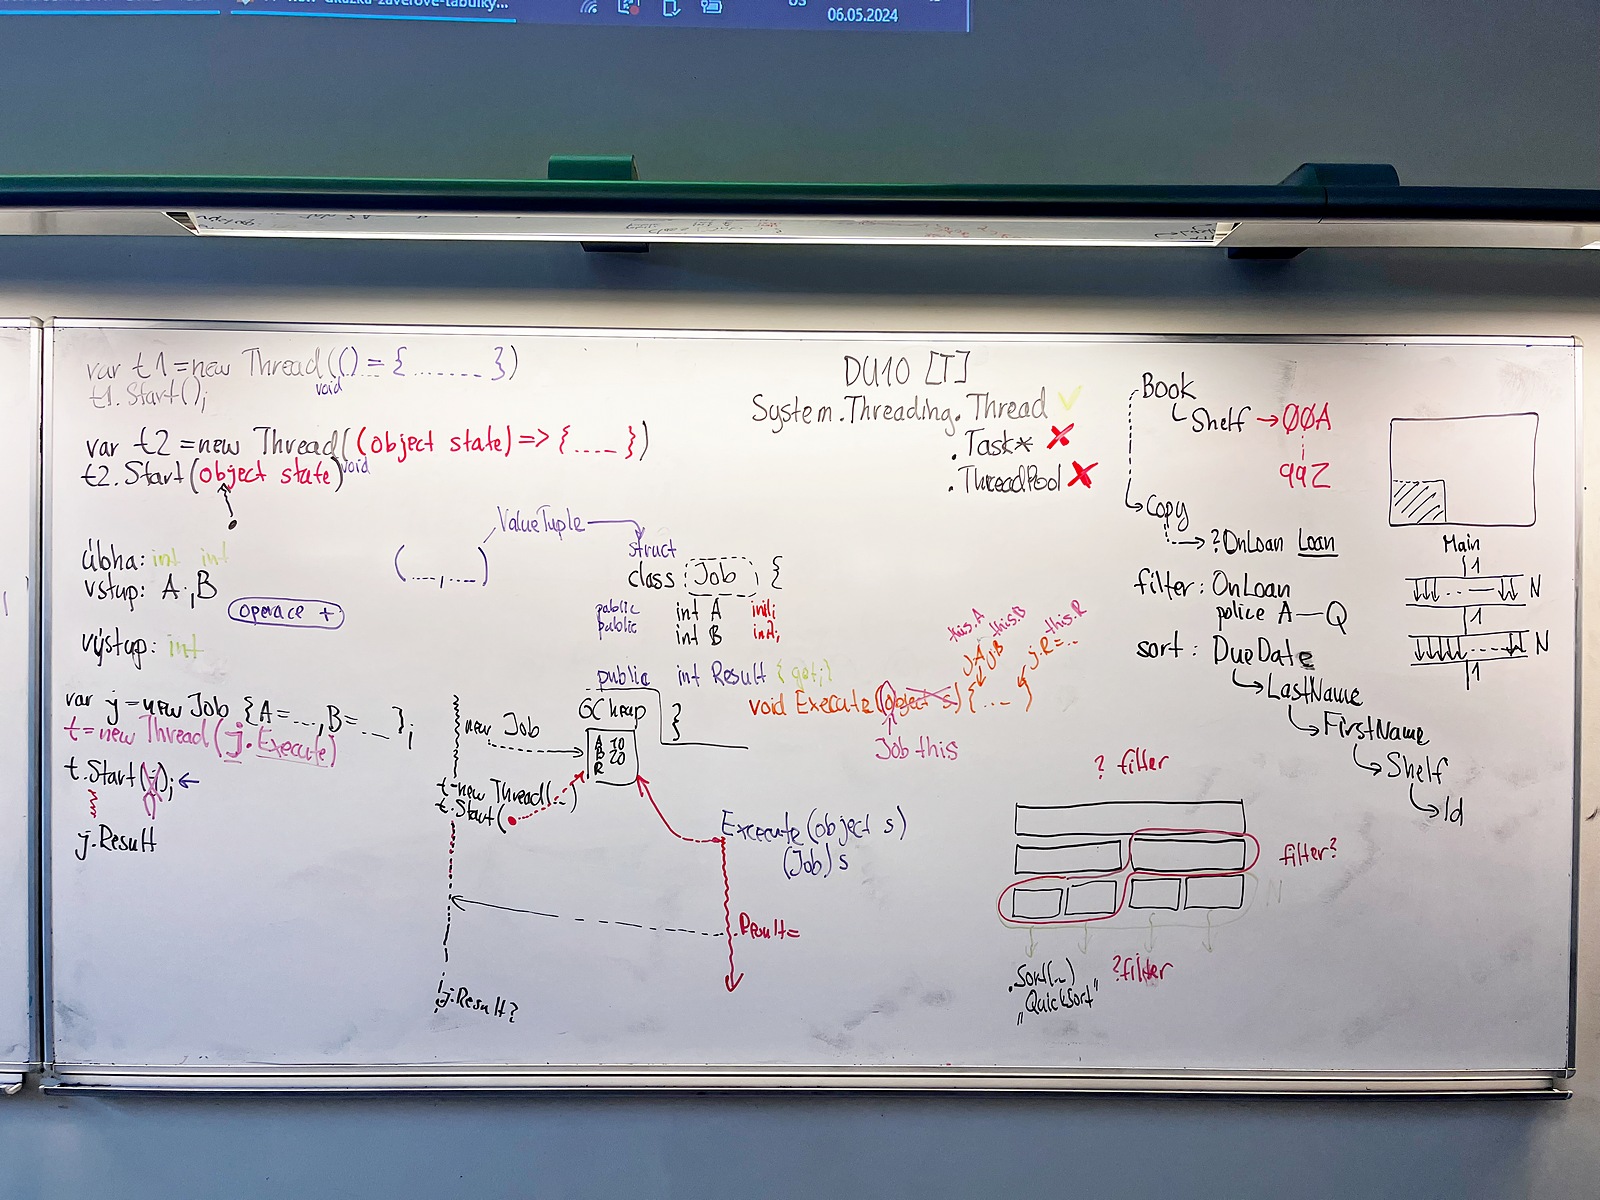 06.05.2024
var t1 = new Thread(() = { ....... })
void
t1.Start();
var t2 = new Thread((object state) => { ..... })
t2.Start(object state) void
ValueTuple
(....,....)
úloha: int int
vstup: A , B
operace +
výstup: int
var j = new Job {A=...., B=.... };
t = new Thread(j.Execute)
t.Start(j); ←
j.Result
struct
class Job {
public int A init;
public int B init;
public int Result { get; }
void Execute(object s) { .... }
}
this.A this.B this.R
J.A J.B j.R = ...
Job this
GC heap
A 10
B 20
R
new Job
t = new Thread(...)
t.Start( )
Excecute(object s)
(Job) s
Result=
j.Result?
DU10 [T]
System.Threading.Thread ✓
.Task* ✗
.ThreadPool ✗
Book
Shelf → ØØA
99Z
Copy
?OnLoan Loan
filter: OnLoan
police A—Q
sort: DueDate
LastName
FirstName
Shelf
Id
Main
1
N
1
N
1
? filter
filter?
N
?filter
.Sort(...)
„QuickSort"